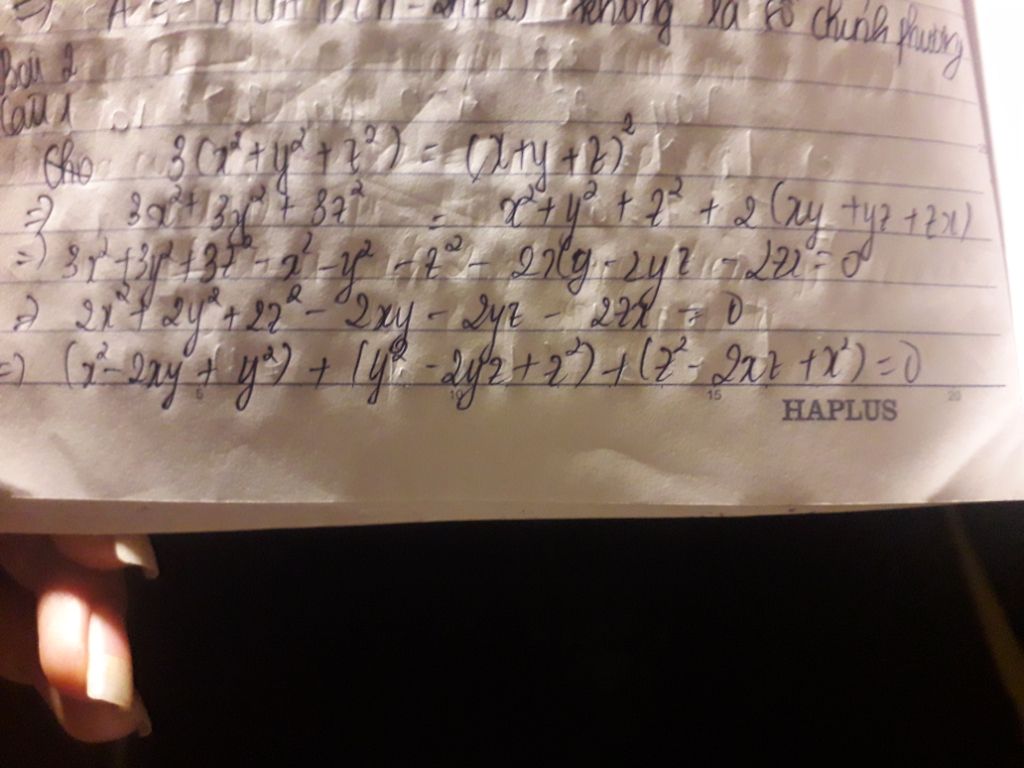 không là số chính phương
Bài 2
Câu 1
Cho 3(x²+y²+z²) = (x+y+z)²
=> 3x²+3y²+3z² = x²+y²+z²+2(xy+yz+zx)
=> 3x²+3y²+3z²-x²-y²-z²-2xy-2yz-2zx=0
=> 2x²+2y²+2z²-2xy-2yz-2zx=0
=> (x²-2xy+y²)+(y²-2yz+z²)+(z²-2xz+x²)=0
5 10 15 20
HAPLUS